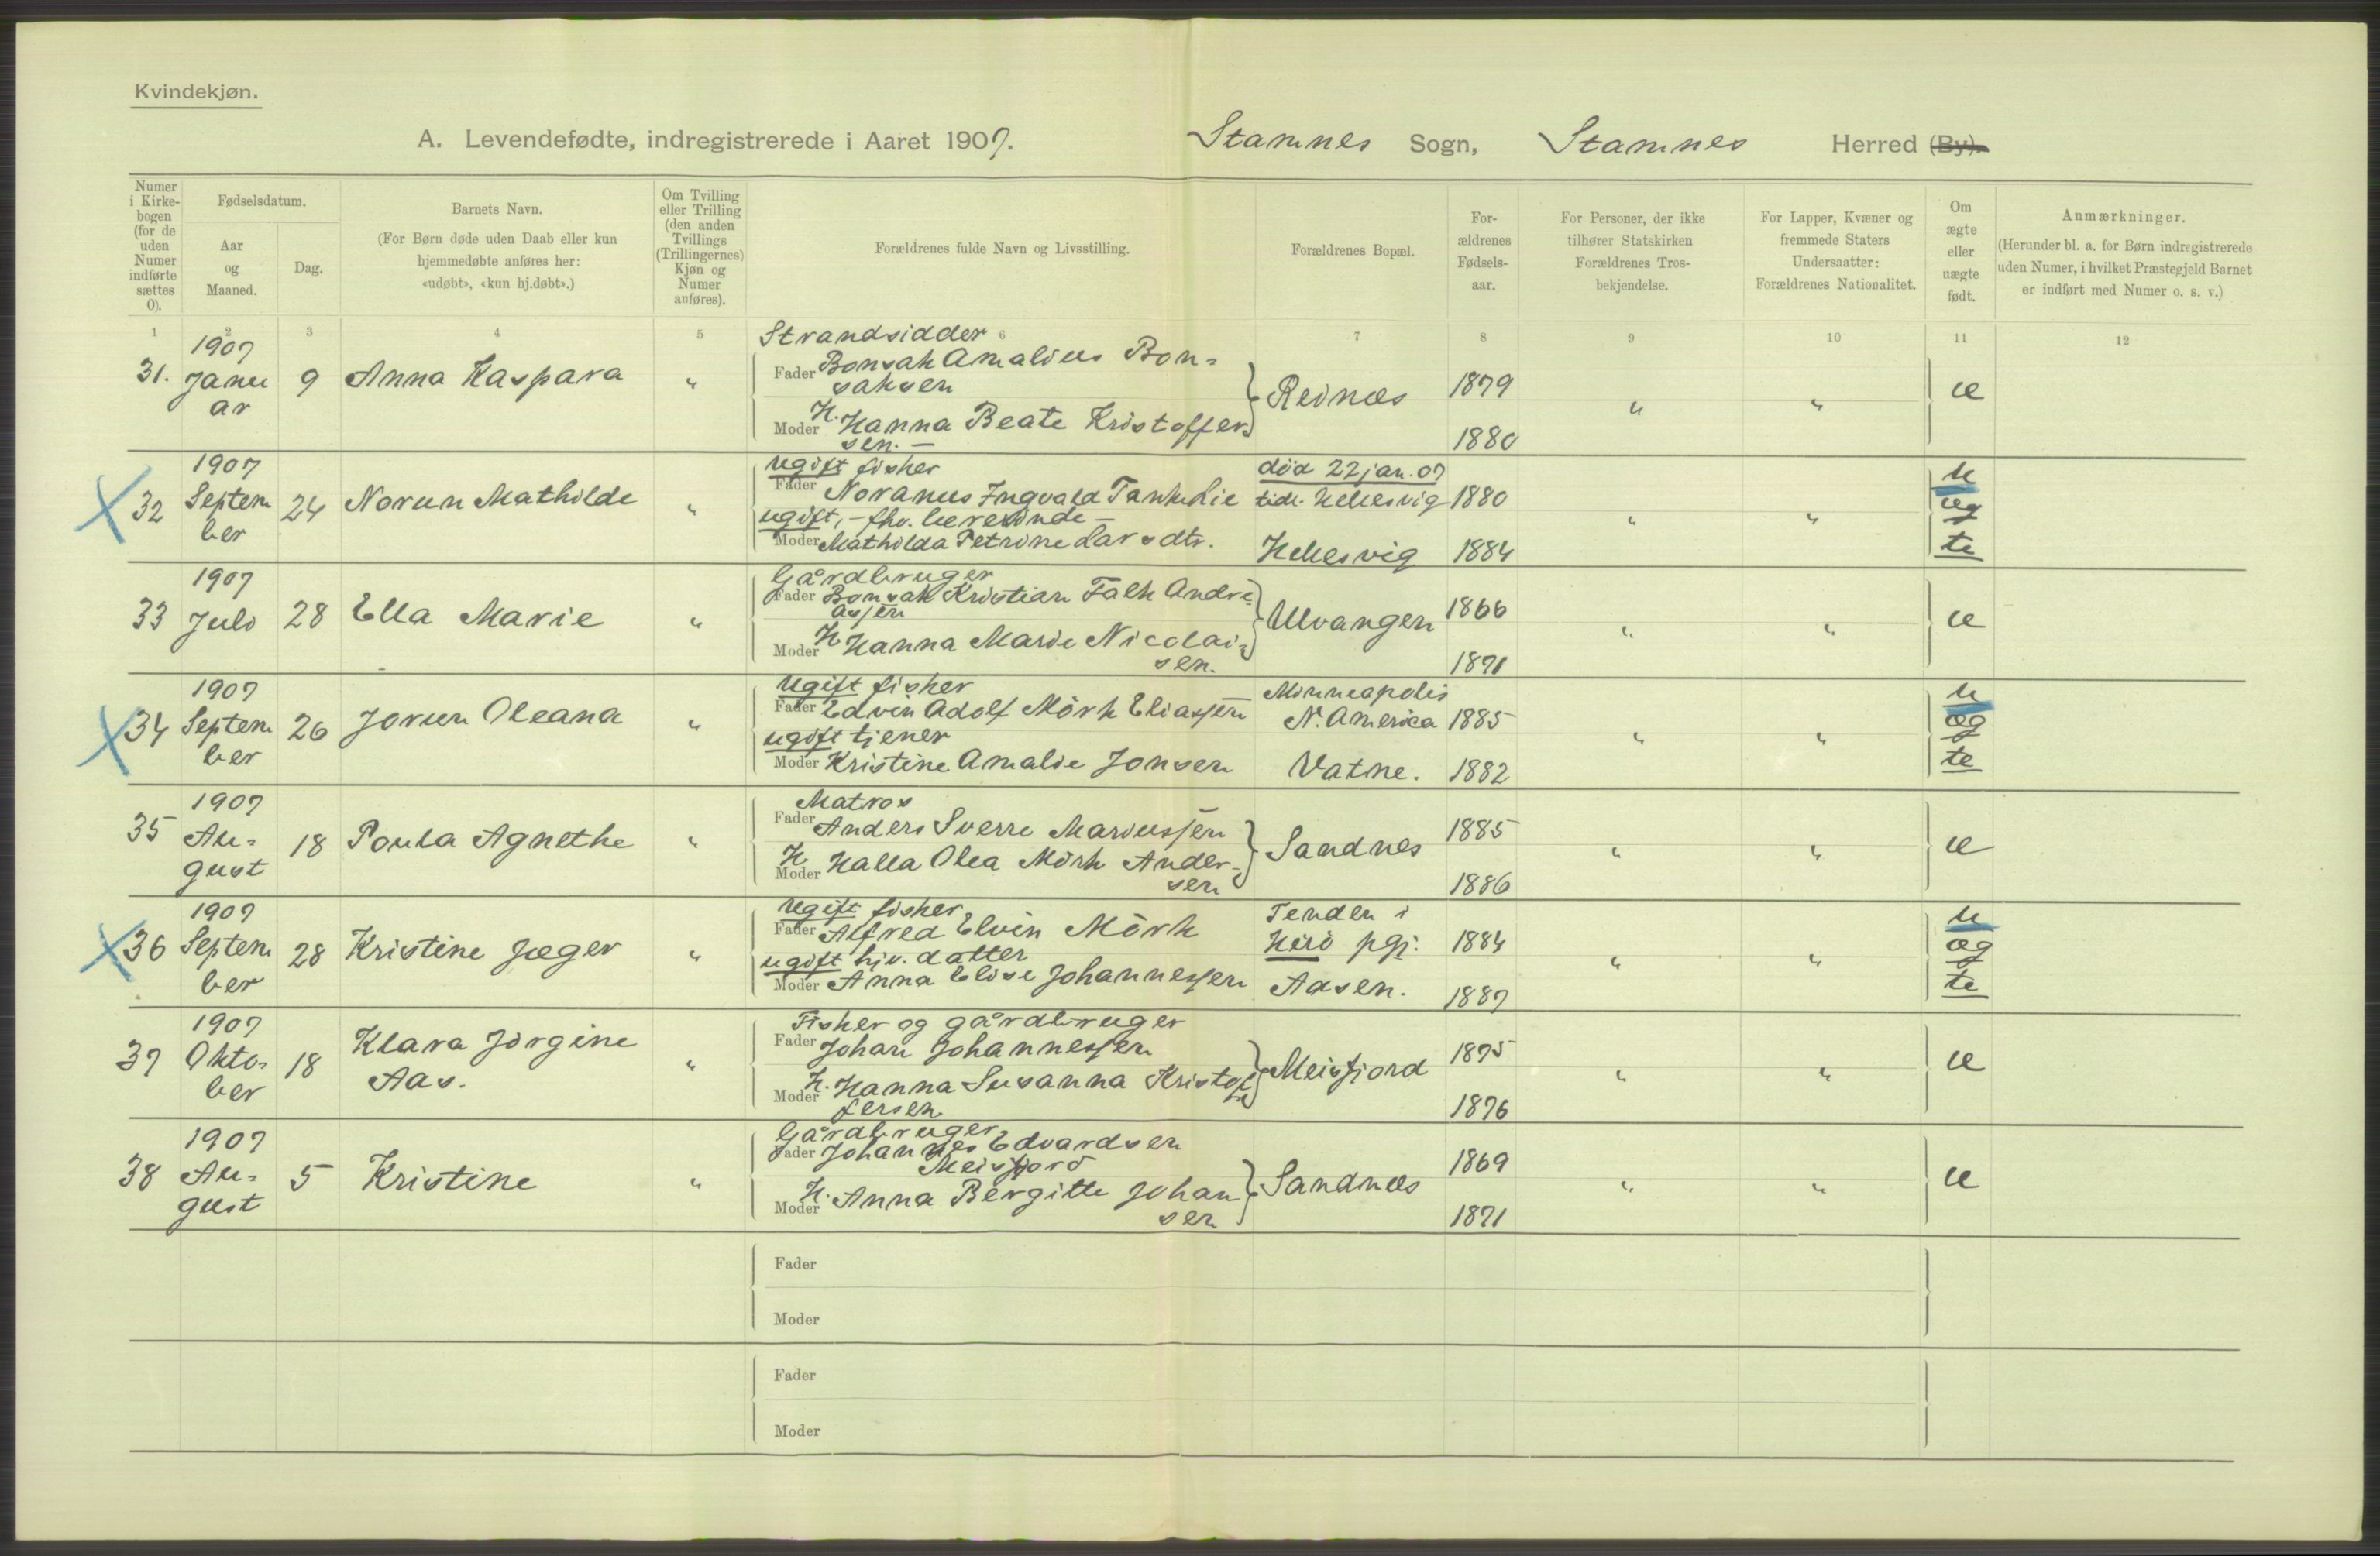 Kvindekjøn.
A. Levendefødte, indregistrerede i Aaret 1907. Stamnes Sogn, Stamnes Herred (By).
Numer i Kirkebogen (for de uden Numer indførte sættes 0).
Fødselsdatum.
Aar og Maaned.
Dag.
Barnets Navn.
(For Børn døde uden Daab eller kun hjemmedøbte anføres her: «udøbt», «kun hj.døbt».)
Om Tvilling eller Trilling (den anden Tvillings (Trillingernes) Kjøn og Numer anføres).
Forældrenes fulde Navn og Livsstilling.
Forældrenes Bopæl.
For-ældrenes Fødsels-aar.
For Personer, der ikke tilhører Statskirken Forældrenes Tros-bekjendelse.
For Lapper, Kvæner og fremmede Staters Undersaatter: Forældrenes Nationalitet.
Om ægte eller uægte født.
Anmærkninger.
(Herunder bl. a. for Børn indregistrerede uden Numer, i hvilket Præstegjeld Barnet er indført med Numer o. s. v.)
1 2 3 4 5 6 7 8 9 10 11 12
31. 1907 Januar 9 Anna Kaspara "
Strandsidder
Fader Bonsak Amalius Bon-
saksen
H.
Moder Hanna Beate Kristoffer
sen. —
Reinæs 1879 1880 " " æ
32 1907 September 24 Norun Mathilde "
Ugift fisker
Fader Noranus Ingvald Tank Lie
død 22 jan. 07
tidl. Hellesvig 1880
ugift, - fhv. lærerinde —
Moder Mathilda Petrine Larsdtr.
Hellesvig 1884 " " uægte
33 1907 Juli 28 Ella Marie "
Gårdbruger
Fader Bonsak Kristian Falk Andre
assen
H
Moder Hanna Marie Nicolai-
sen.
Ulvangen 1866 1871 " " æ
34 1907 September 26 Jorun Oleana "
Ugift fisker
Fader Edvin Adolf Mörk Eliassen
Minneapolis
N. America 1885
ugift tjener
Moder Kristine Amalie Jonsen
Vatne. 1882 " " uægte
35 1907 Au-gust 18 Poula Agnethe "
Matros
Fader Anders Sverre Mariussen
H
Moder Halla Olea Mörk Ander-
sen
Sandnes 1885 1886 " " æ
36 1907 September 28 Kristine Jæger "
Ugift fisker
Fader Alfred Elvin Mörk
Tenden i
Herö pgj. 1884
ugift hjv. datter
Moder Anna Elise Johannessen
Aasen. 1887 " " uægte
37 1907 Okto-ber 18 Klara Jörgine
Aas. "
Fisker og gårdbruger
Fader Johan Johannessen
H.
Moder Hanna Susanna Kristof
fersen
Meisfjord 1875 1876 " " æ
38 1907 Au-gust 5 Kristine "
Gårdbruger
Fader Johannes Edvardsen
Meisfjord
H.
Moder Anna Bergitte Johan
sen
Sandnæs 1869 1871 " " æ
Fader
Moder
Fader
Moder